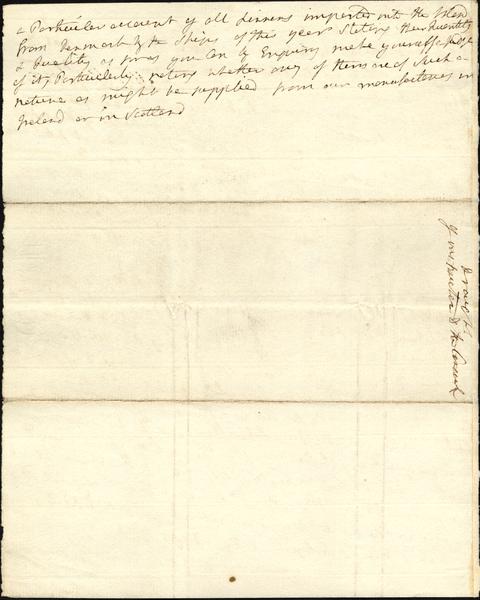 a Particuler account of all Linnens imported into the Island
from Denmark by the Ships of this year Stating their Quantity
& Quality as far as you can by Enquiry make yourself Judge
of it, Particularly noteing whether any of them are of Such a
nature as might be supplied from our manufactures in
Ireland or in Scotland
Draught
of to the Consul